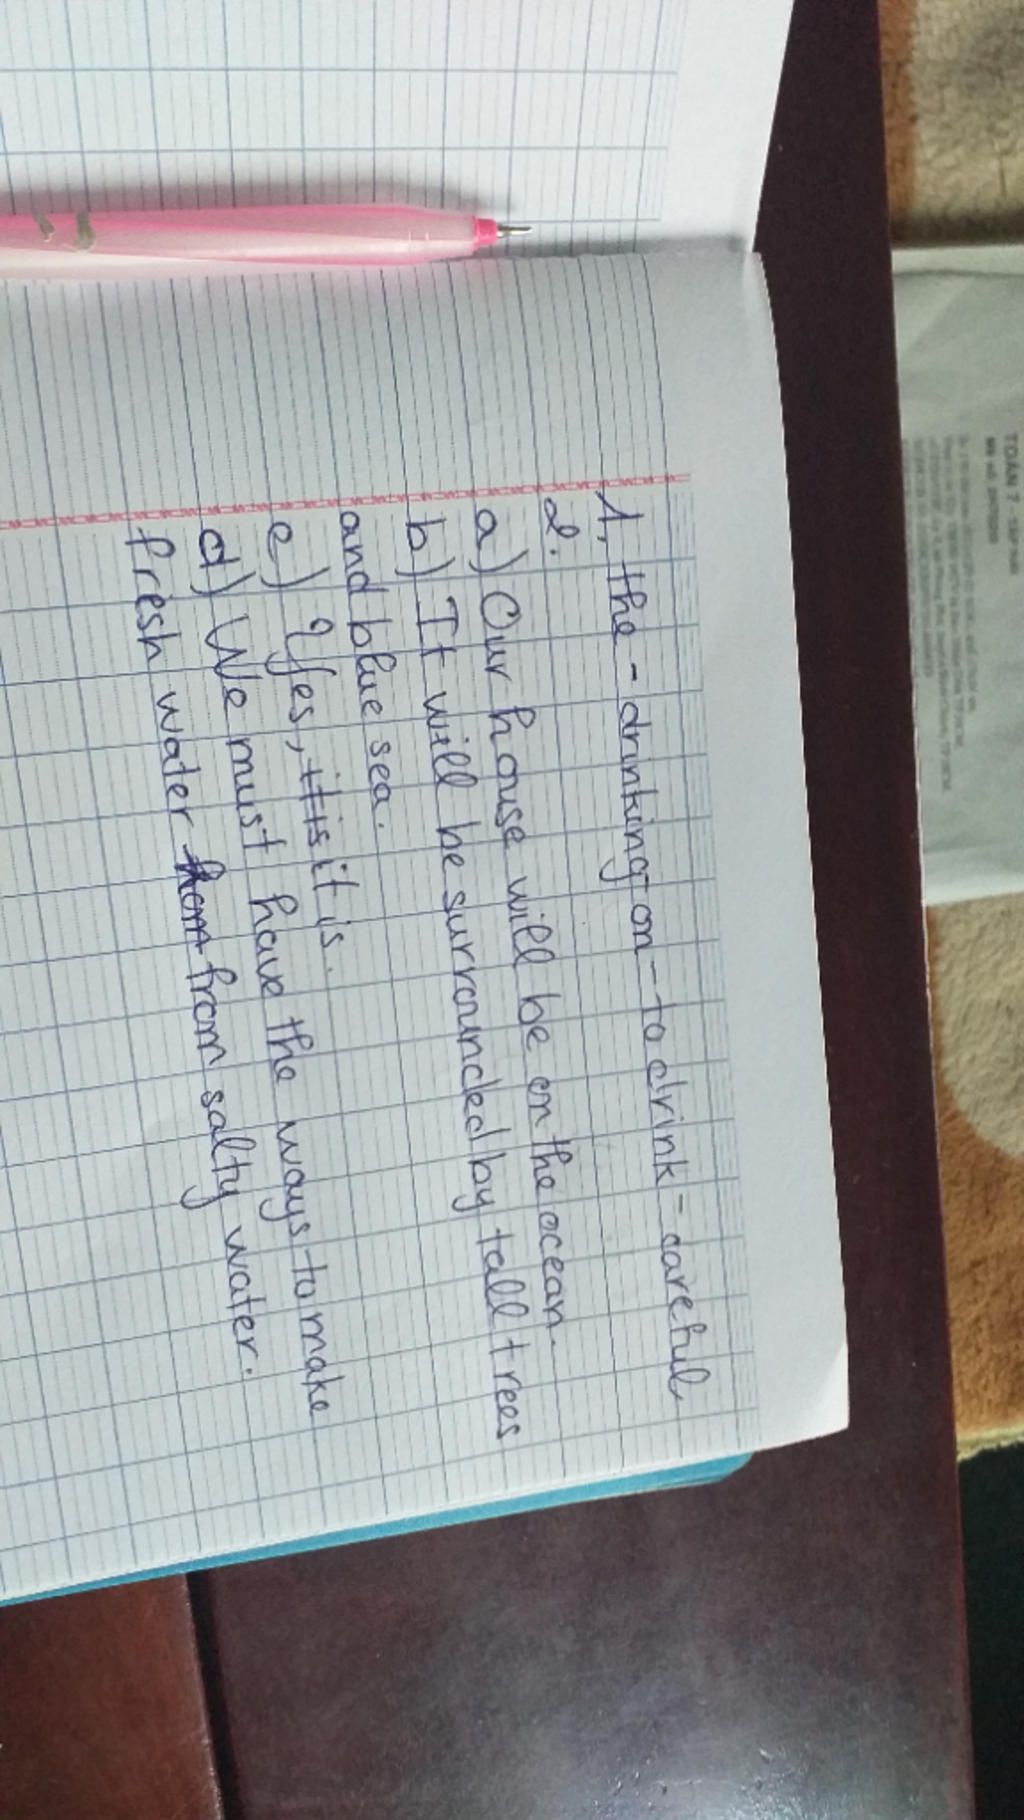 1, the - drinking - on - to drink - careful
2.
a) Our house will be on the ocean.
b) It will be surrounded by tall trees
and blue sea.
c) Yes, it is it is.
d) We must have the ways to make
fresh water from from salty water.
TOÁN 7